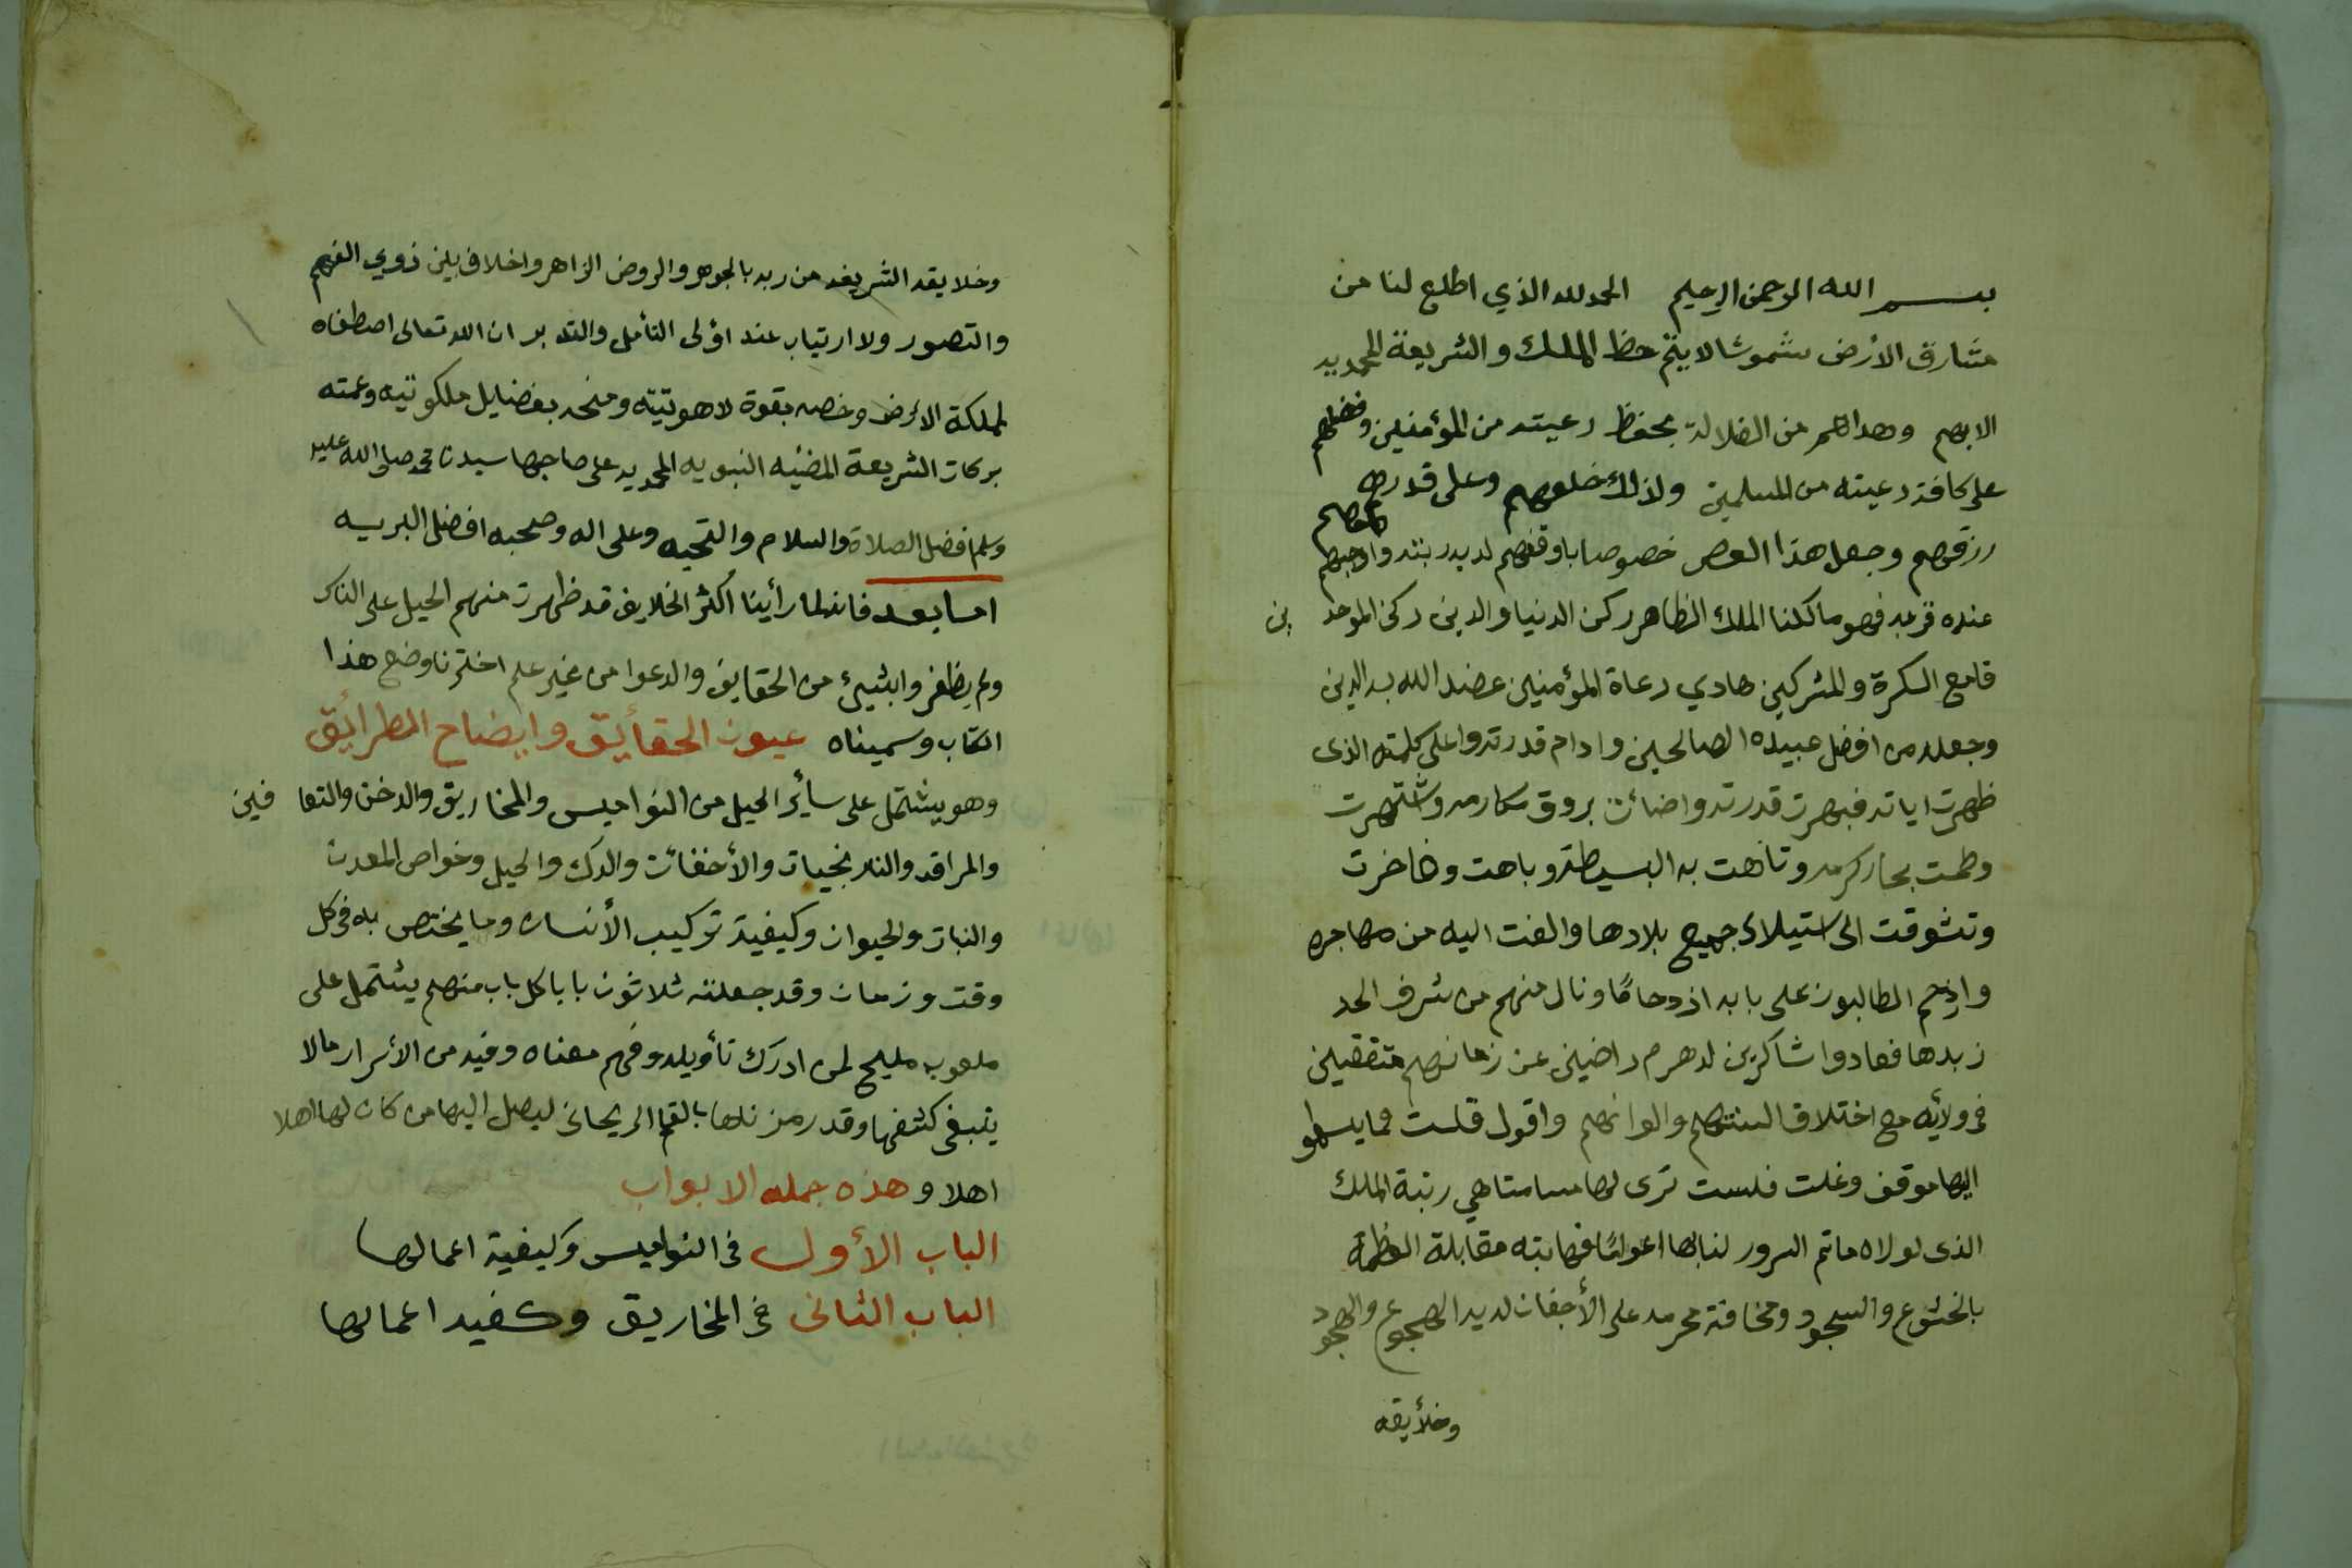 بسم الله الرحمن الرحيم الحمد لله الذي اطلع لنا من
مشارق الأرض شموسا لا يتم حظ الملك والشريعة المحمديه
الا بهم وهداهم من الضلالة بحفظ رعيته من المؤمنين وفضلهم
على كافة رعيته من المسلمين ولذلك خلقهم وعلى قدر
رزقهم وجعل هذا العصر خصوصا باوقفهم لديه رتبته واوجبهم
عنده قربه فهو مالكنا الملك الظاهر ركن الدنيا والدين ركن الموحدين
قامع السكرة والمشركين هادي دعاة المؤمنين عضد الله به الدين
وجعله من افضل عبيده الصالحين وادام قدرته واعلى كلمته الذى
ظهرت اياته فبهرت قدرته واضائت بروق مكارمه واشتهرت
وطمت بحار كرمه وتاهت به البسيطة وباهت وفاخرت
وتشوقت الى استيلاء جميع بلادها والفت اليه من مهاجره
وازدحم الطالبون على بابه ازدحامًا ونال منهم من شرف الحد
زبدها فعادوا شاكرين لدهرهم راضين عن زمانهم متفقين
فى ولائه مع اختلاف السنتهم والوانهم واقول قلت فما يسمو
اليها موقف وغلت فلست ترى لها مسامتا هي رتبة الملك
الذى لولاه ماتم السرور لنا بها اعوامًا فهابته مقابلة العظمة
بالخشوع والسجود ومخافة محرمه على الأجفان لديه الهجوع والهجود
وخلأيقه
وخلايقه الشريفه من ربه بالجوهر والروض الزاهر واخلاف بين ذوي الفهم
والتصور ولا ارتياب عند اؤلى التأمل والتدبر ان الله تعالى اصطفاه
لمملكة الأرض وخصه بقوة لاهوتيته ومنحه بفضايل ملكوتيه وعمته
بركات الشريعة المضيئه النبويه المحمديه على صاحبها سيدنا محمد صلى الله عليه
وسلم افضل الصلاة والسلام والتحيه وعلى اله وصحبه افضل البريه
اما بعد فانه لما رأينا أكثر الخلايق قد ظهرت منهم الحيل على الناس
ولم يظفروا بشيئ من الحقايق والدعوا من غير علم اخترنا وضع هذا
الكتاب وسميناه عيون الحقأيق وايضاح الطرأيق
وهو يشتمل على سأير الحيل من النواميس والمخاريق والدخن والتعافين
والمراقد والنارنجيات والأخفائت والدك والحيل وخواص المعدن
والنبات والحيوان وكيفية تركيب الأنسان وما يختص به فى كل
وقت وزمان وقد جعلته ثلاثون بابا كل باب منهم يشتمل على
ملعوب مليح لمن ادرك تأويله وفهم معناه وفيه من الأسرار مالا
ينبغى كشفها وقد رمزناها بالقلم الريحانى ليصل اليها من كان لها اهلا
اهلا وهذه جمله الابواب
الباب الأول فى النواميس وكيفية اعمالها
الباب الثانى فى المخاريق وكفيه اعمالها